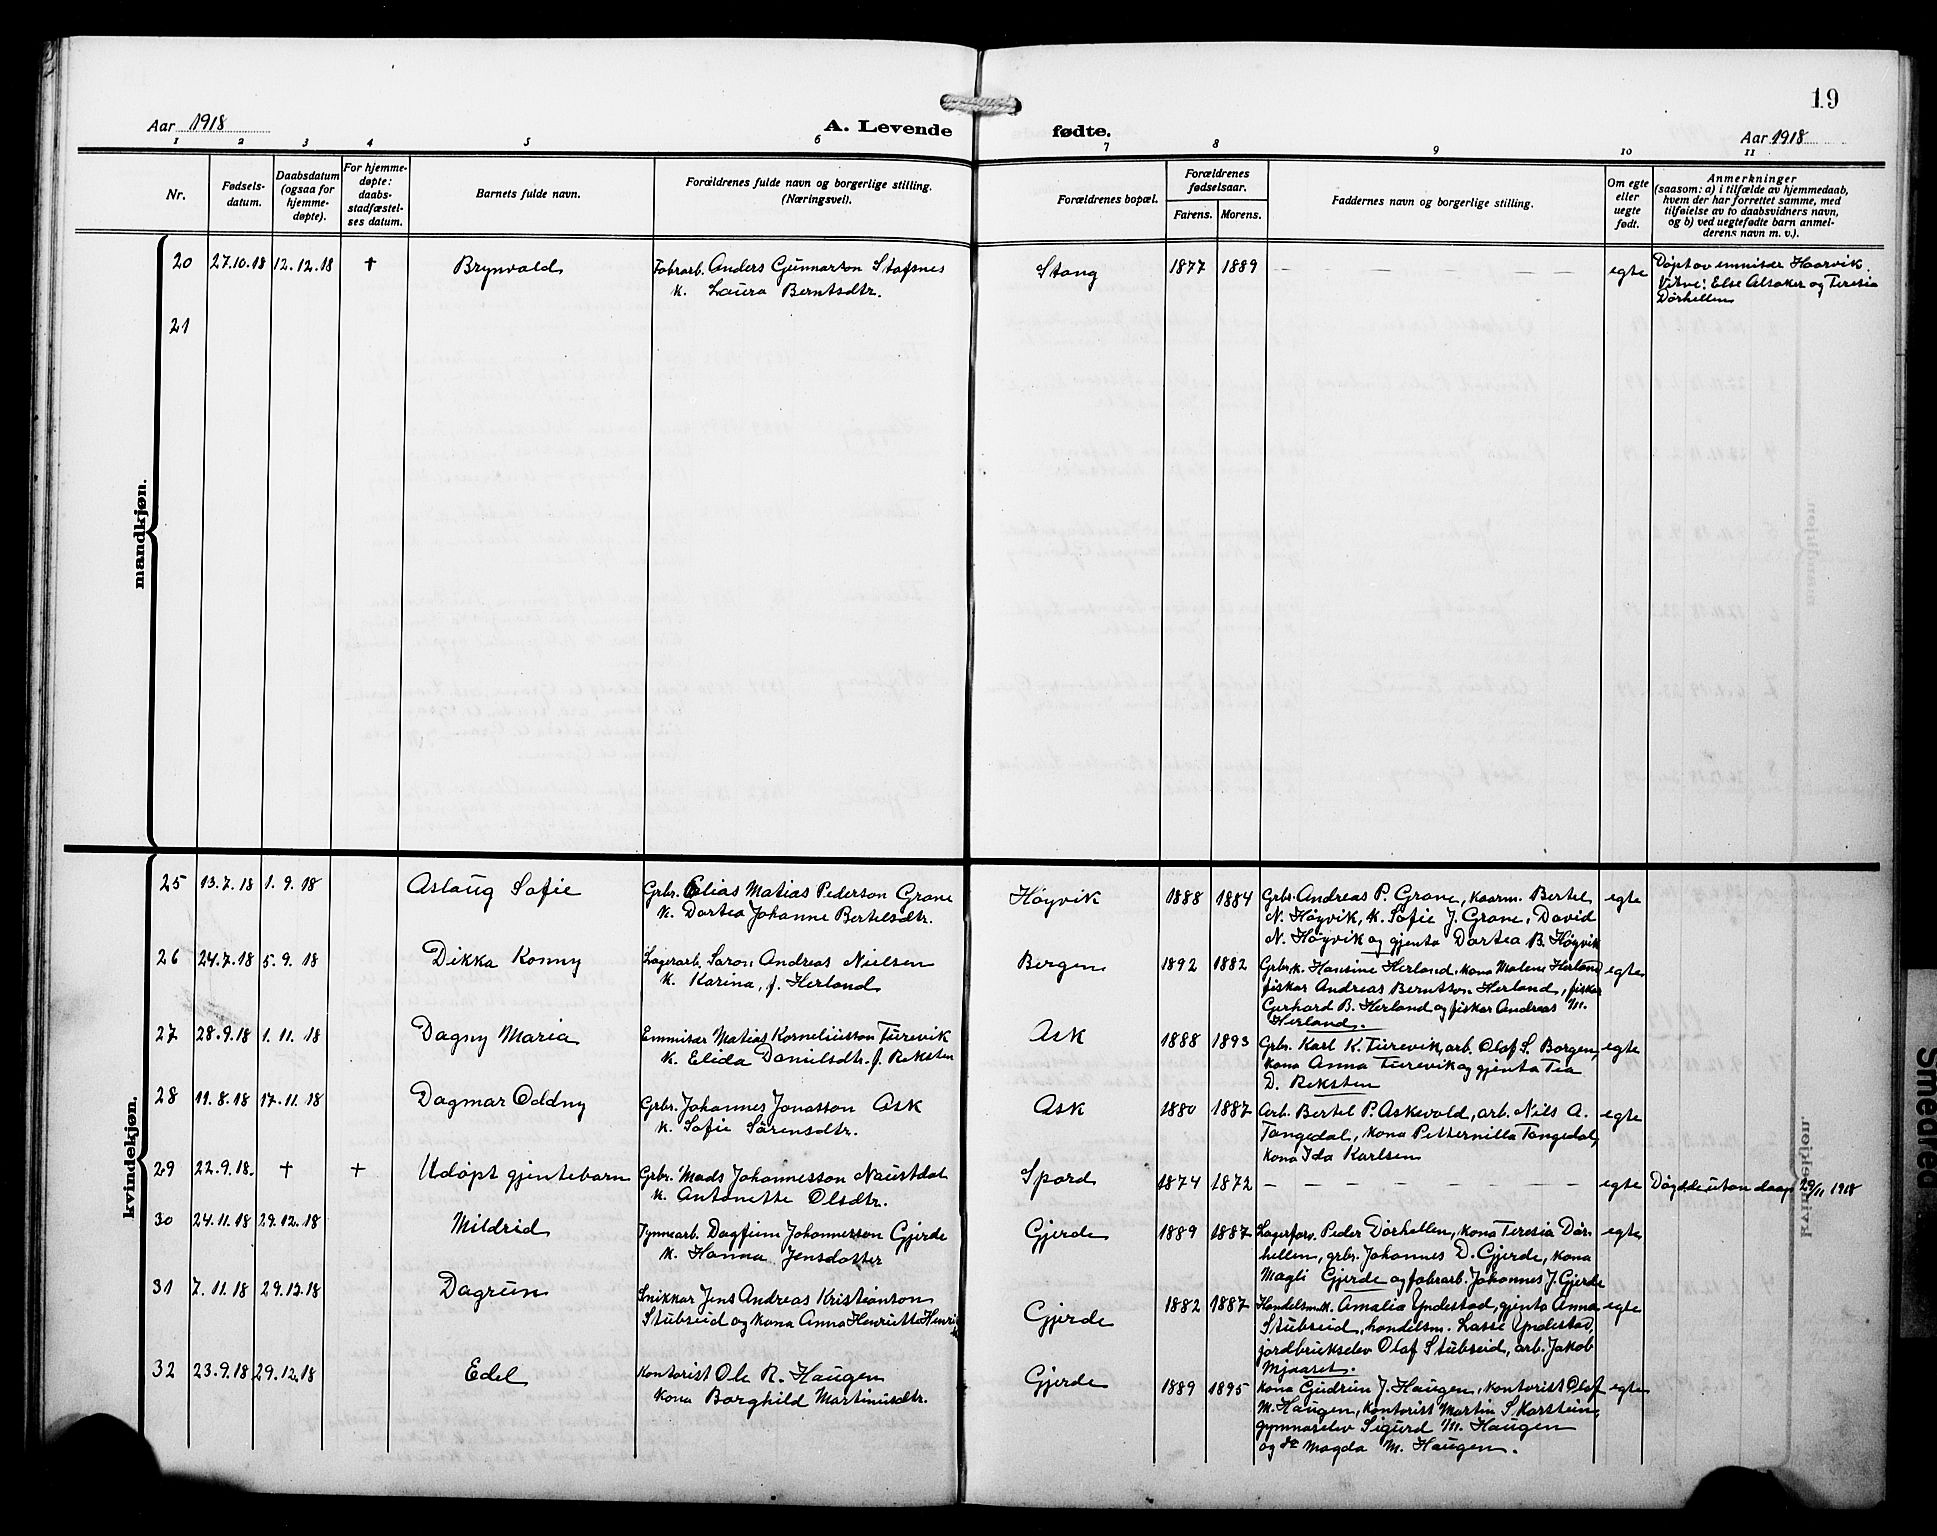 19
Aar 1918
A. Levende fødte.
Aar 1918
1 2 3 4 5 6 7 8 9 10 11
Nr.
Fødselsdatum.
Daabsdatum (ogsaa for hjemmedøpte).
For hjemmedøpte: daabsstadfæstelses datum.
Barnets fulde navn.
Forældrenes fulde navn og borgerlige stilling. (Næringsvei).
Forældrenes bopæl.
Forældrenes fødselsaar.
Farens. Morens.
Faddernes navn og borgerlige stilling.
Om egte eller uegte født.
Anmerkninger
(saasom: a) i tilfælde av hjemmedaab,
hvem der har forrettet samme, med
tilføielse av to daabsvidners navn,
og b) ved uegtefødte barn anmel-
derens navn m. v.).
mandkjøn.
20 27.10.18 12.12.18 + Brynvald Fabrarb. Anders Gunnarson Stafsnes
k. Laura Berntsdtr.
Stang 1877 1889 — egte Døpt av emmisær Haarvik.
Vitne: Else Alsaker og Teresia
Dørhellen
21
kvindekjøn.
25 13.7.18 1.9.18 Aslaug Sofie Grbr. Elias Matias Pederson Grane
k. Dortea Johanne Bertelsdtr.
Høyvik 1888 1884 Grbr. Andreas P. Grane, kaarm. Bertel
N. Høyvik, k. Sofie J. Grane, David
N. Høyvik og gjenta Dortea B. Høyvik
egte
26 24.7.18 5.9.18 Dikka Konny Lagerarb. Andreas Nielsen
k. Karina, f. Herland
Bergen 1892 1882 Grbr.k. Hansine Herland, kona Malene Herland
fiskar Andreas Berntson Herland, fiskar
Gerhard B. Herland og fiskar Andreas M.
Herland.
egte
27 28.9.18 1.11.18 Dagny Maria Emmisær Matias Korneliusson Turevik
k. Elida Danielsdtr. f. Reksten
Ask 1888 1893 Grbr. Karl K. Turevik, arb. Olof S. Borgen,
kona Anna Turevik og gjenta Tea
D. Reksten
egte
28 11.8.18 17.11.18 Dagmar Oddny Grbr. Johannes Jonasson Ask
k. Sofie Sørensdtr.
Ask 1880 1887 Arb. Bertel P. Askevold, arb. Nils A.
Tangedal, kona Petternilla Tangedal,
kona Ida Karlsen
egte
29 22.9.18. + + Udøpt gjentebarn Grbr. Mads Johannesson Naustdal
k. Antonette Olsdtr.
Spord 1874 1872 — egte Døydde utan daap 29/11 1918
30 24.11.18 29.12.18 Mildrid Tynnearb. Dagfinn Johannesson Gjerde
k. Hanna Jensdotter
Gjerde 1889 1887 Lagerforv. Peder Dørhellen, kona Teresia Dør-
hellen, grbr. Johannes D. Gjerde, kona
Magli Gjerde og fabrarb. Johannes J. Gjerde
egte
31 7.11.18 29.12.18 Dagrun Snikkar Jens Andreas Kristianson
Stubseid og kona Anna Henriette
Gjerde 1882 1887 Handelsm.k. Amalia Yndestad, gjenta Anna
Stubseid, handelsm. Lasse Yndestad,
jordbrukselev Olaf Stubseid, arb. Jakob
Mjaaset.
egte
32 23.9.18 29.12.18 Edel Kontorist Ole R. Haugen
kona Borghild Martinusdtr.
Gjerde 1889 1895 Kona Gudrun J. Haugen, kontorist Olaf
M. Haugen, kontorist Martin S. Karstein,
gymnaselev Sigurd M. Haugen
og do Magda M. Haugen.
egte
Smedred